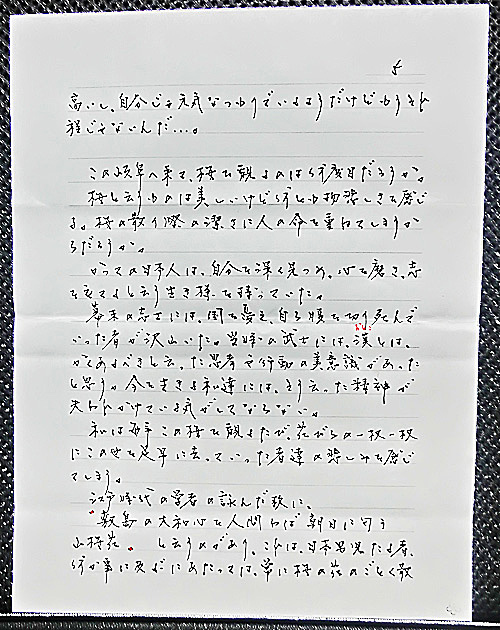 5
高いし、自分じゃ元気なつもりでいるようだけどもうそれ
程じゃないんだ…。
この岐阜へ来て、桜を観るのは何度目だろうか。
桜と云うものは美しいけど何とも物悲しさを感じ
る。桜の散り際の潔さに人の命を重ねてしまうか
らだろうか。
かつての日本人は、自分を深く見つめ、心を磨き、志
を立てると云う生き様を持っていた。
幕末の志士には、国を憂え、自ら頬を切り死んで
いった者が沢山いた。当時の武士には、漢とは、
おとこ
かくあるべきと云った思考や行動の美意識があった
と思う。今を生きる私達には、そう云った精神が
失われかけている気がしてならない。
私は毎年この桜を観るたび、花びらの一枚一枚
にこの世を足早に去っていった者達の悲しみを感じ
てしまう。
江戸時代の学者の詠んだ歌に、
"敷島の大和心を人問わば 朝日に匂う
山桜花" と云うのがあり、これは、日本男児たる者、
何か事に及ぶにあたっては、常に桜の花のごとく散